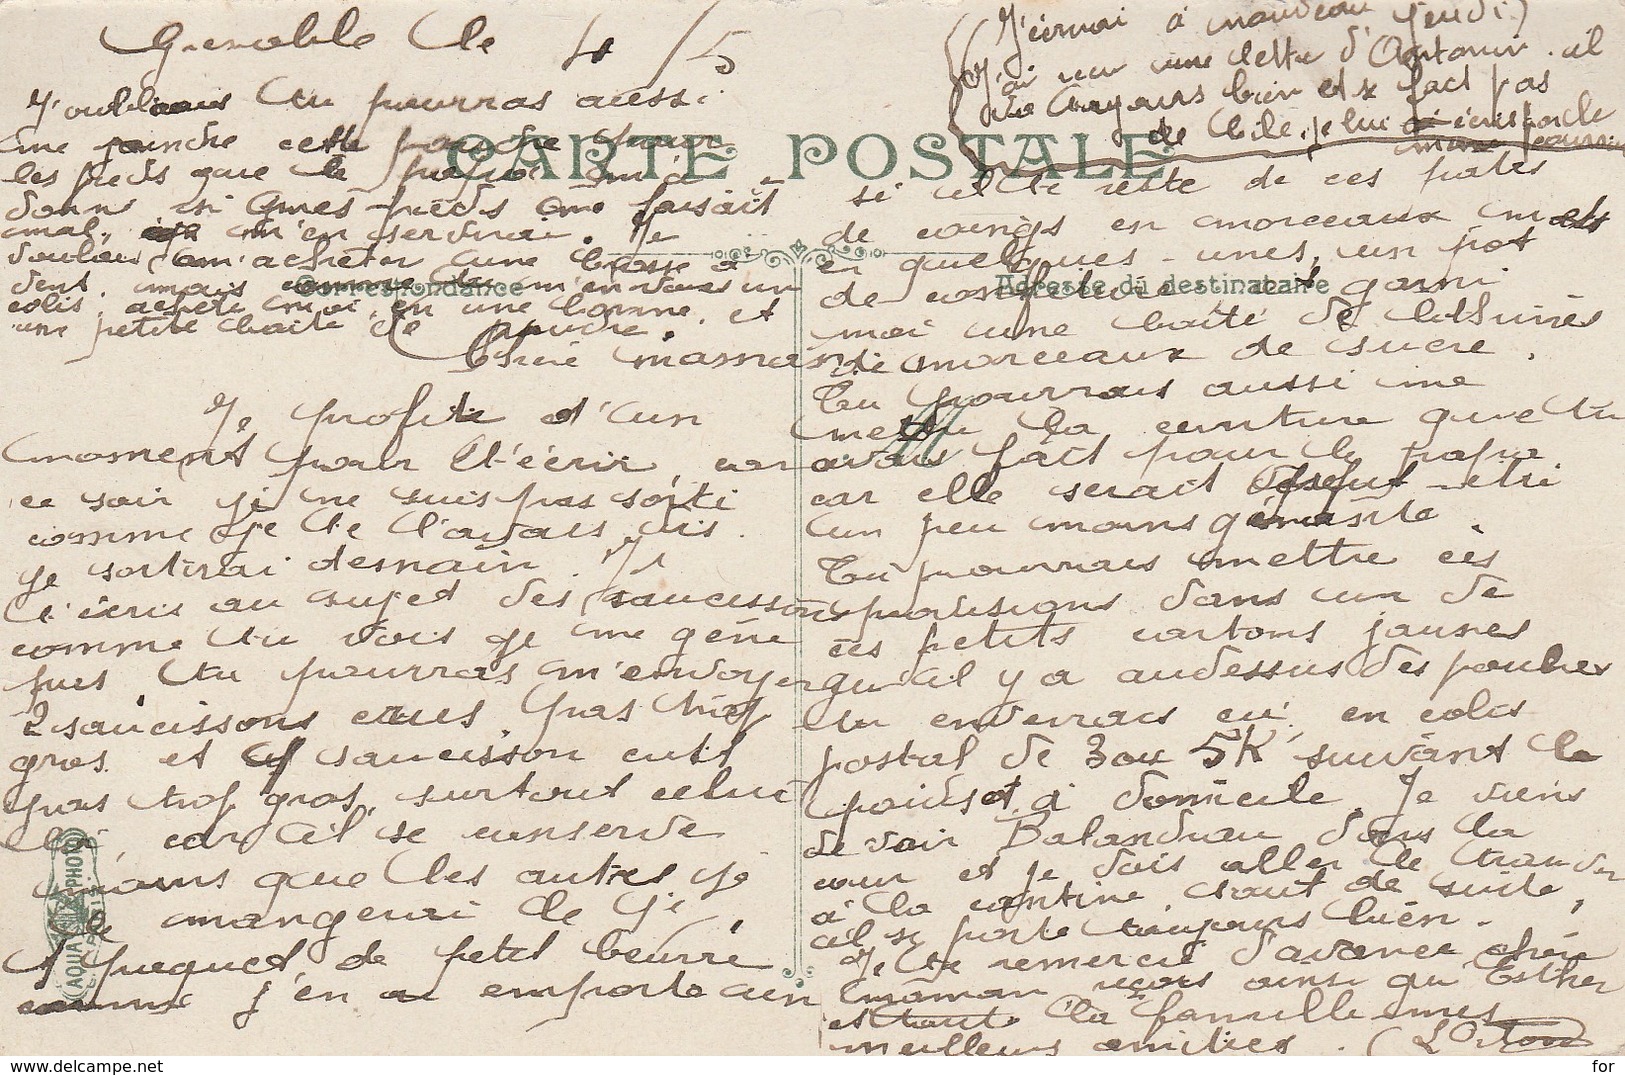 Grenoble le 4/5
J'oubliais tu pourras aussi
les pieds que le
donné ici mes pieds me faisait
mal, je m'en servirai. Je
voulais m'acheter une brosse à
dent, mais comme tu m'envoies un
colis, achète moi en une bonne, et
une petite boite de poudre.
Chère maman
Je profite d'un
moment pour t'écrir, car
ce soir je ne suis pas sorti
comme je te l'avais dis.
je sortirai demain. Je
t'écris au sujet des saucissons
comme tu vois je me gène
pas. tu pourras m'envoyer
2 saucissons crus pas trop
gros et 1 saucisson cuit
pas trop gros, surtout celui
là, car il se conserve
moins que les autres je
le mangerai le 1er,
1 paquet de petit beurre
comme j'en ai emporté un
si il te reste de ces pates
de coings en morceaux mets
en quelques-unes, un pot
de confiture, et garni
moi une boite de
de morceaux de sucre.
Tu pourrais aussi me
mettre la ceinture que tu
avais fait pour le papa
car elle serait peut-etre
un peu moins génante.
Tu pourrais mettre ces
provisions dans un de
ces petits cartons jaunes
qu'il y a audessus des
tu enverras ça en colis
postal de 3 ou 5K suivant le
poids et à domicile. Je viens
de voir Balandrau dans la
cour et je vais aller le
à la cantine tout de suite,
il se porte toujours bien.
Je te remercie d'avance chère
maman reçois ainsi qu' Esther
et toute la famille mes
meilleurs amitiés.
J'écrirai à nouveau jeudi
J'ai reçu une lettre d'Antonin. il
va toujours bien et ne fait pas
de bile, je lui écris
CARTE POSTALE
Correspondance
Adresse du destinataire
AQUA PHOTO
www.delcampe.net
for